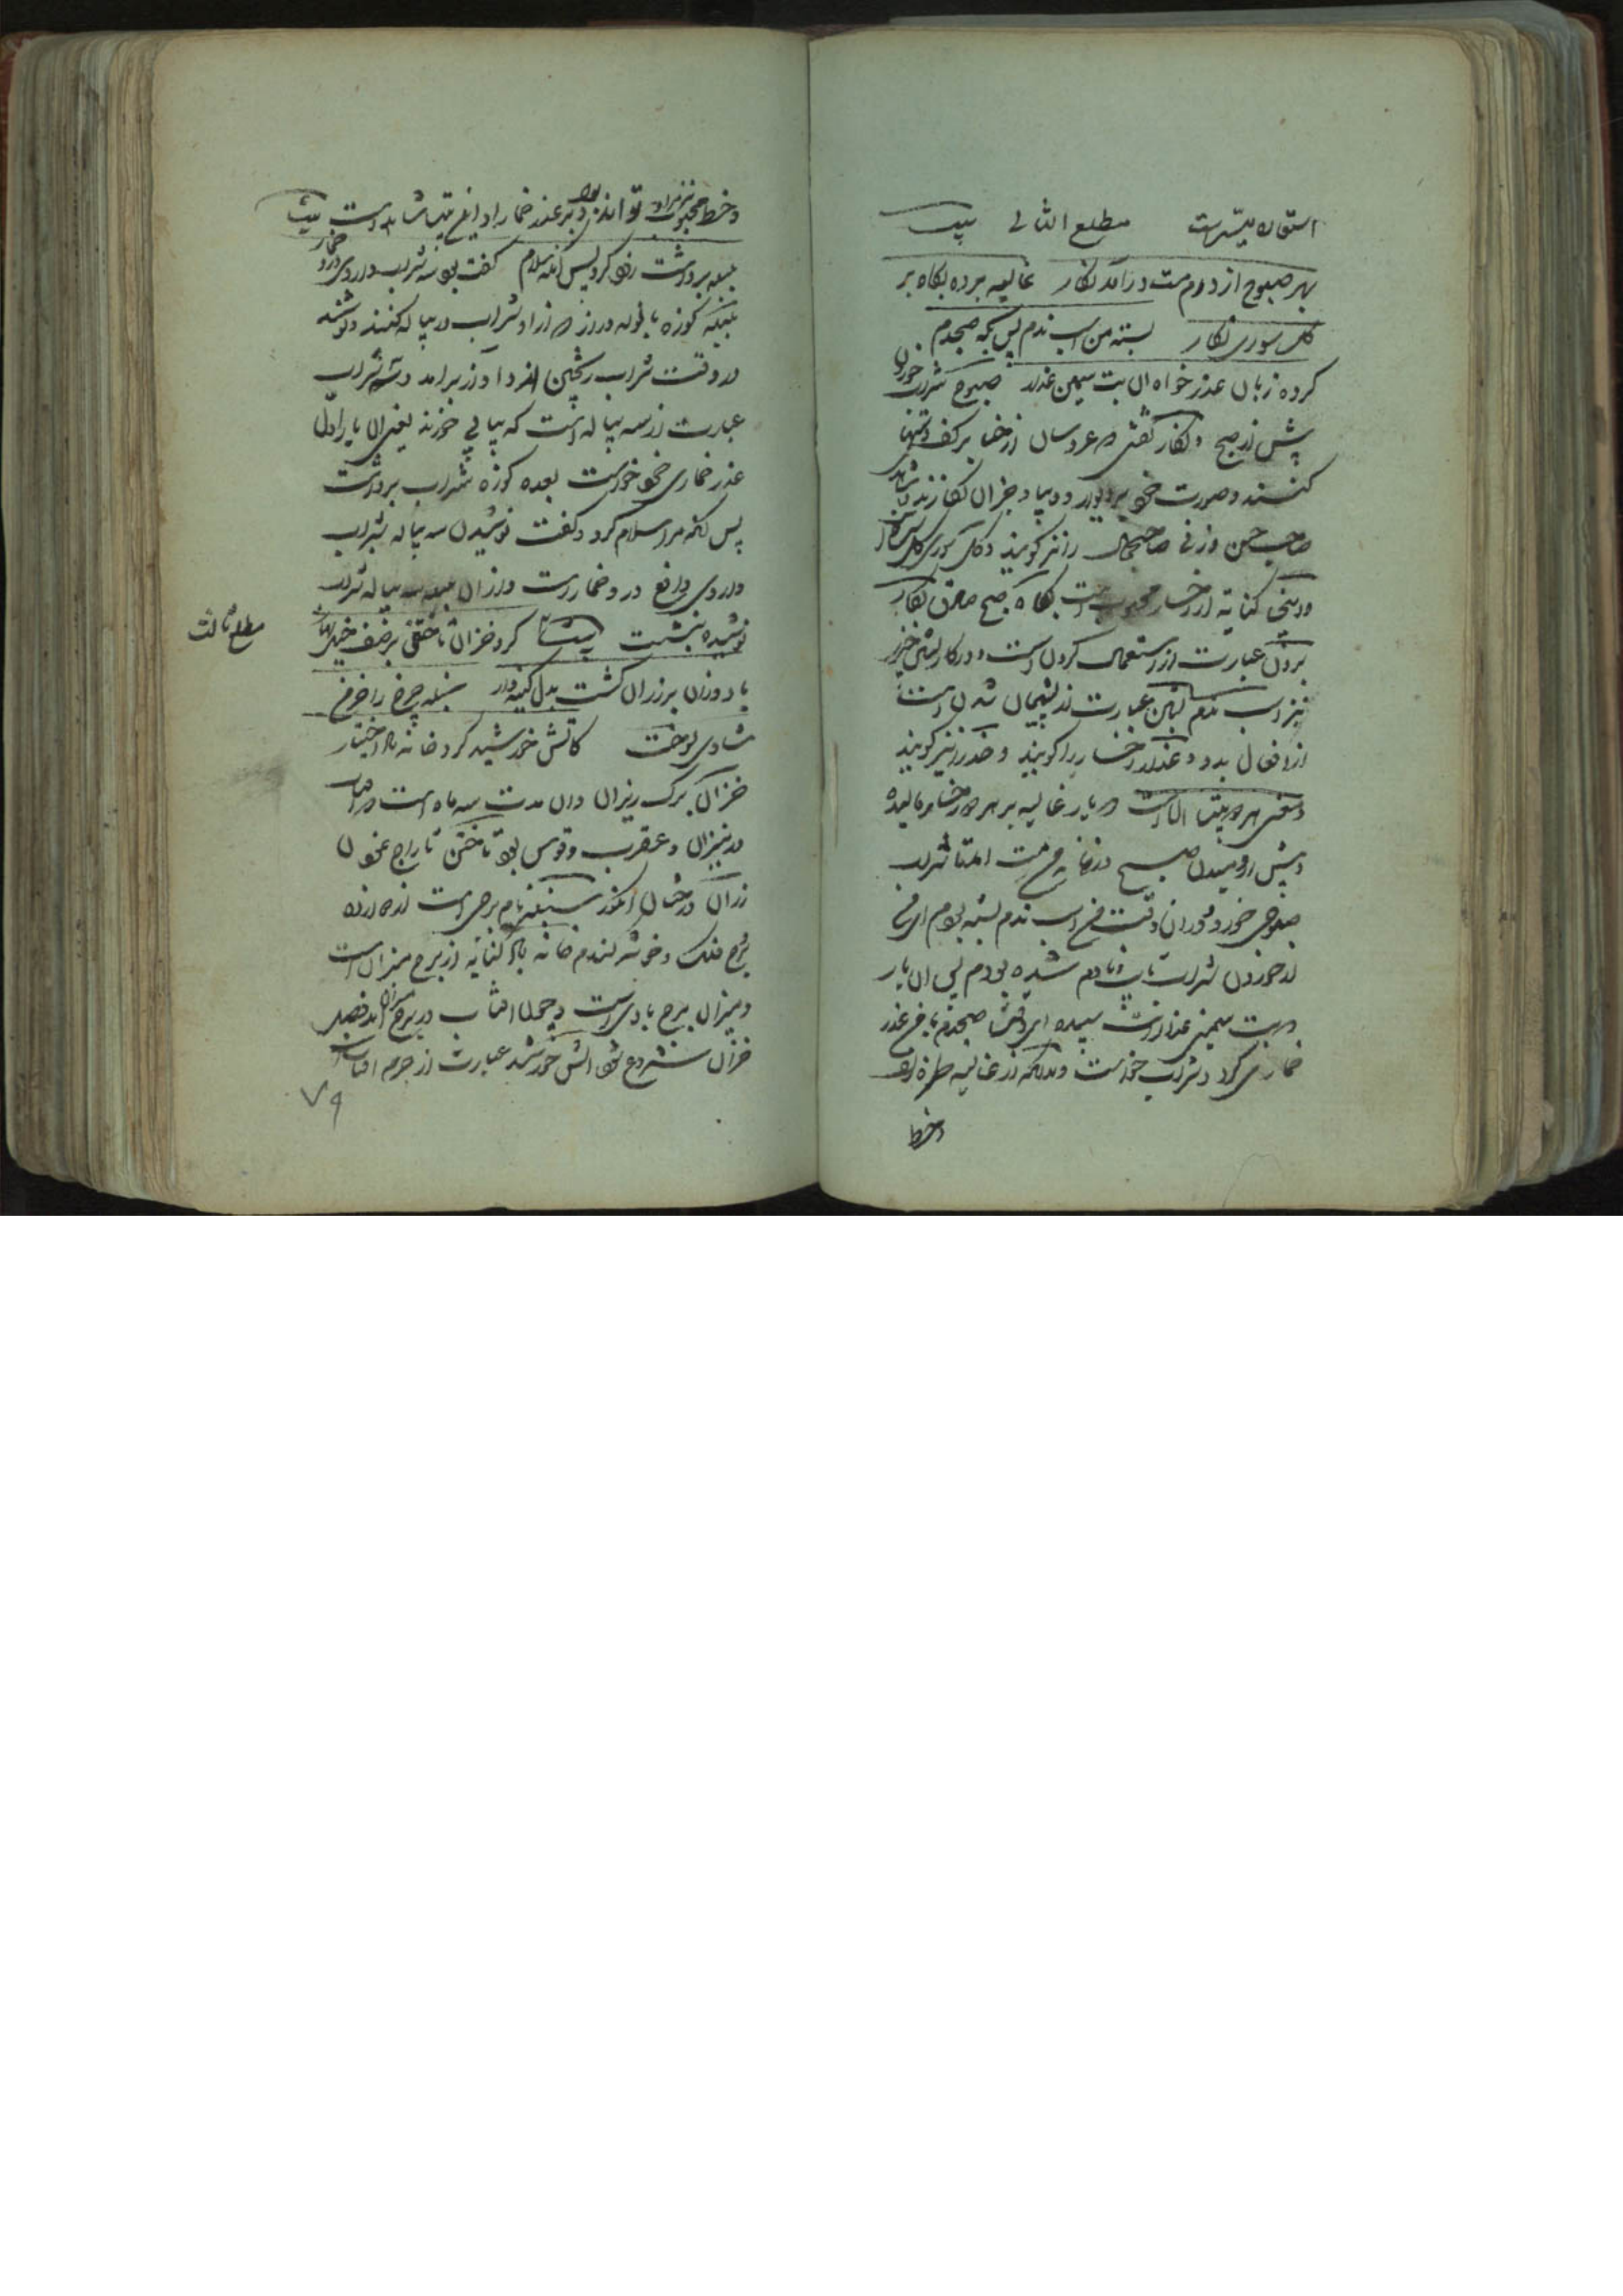 استعاره میسر است مطلع الثانی بیت
بهر صبوح از درم مست درآمد نگار غالیه برده بگاه بر
گل سوری نگار بسته من اسب ندم پس بگه صبحدم
کرده زبان عذر خواه آن بت سیمین عذار صبوح شراب خوردن
پیش از صبح و نگار نقشی که عروسان از حنا بر کف دستها
کنند و صورت خو و دیبا و جز آن نگارند و شاهد
صاحب حسن و زنی صاحب جمال را نیز گویند و گل سوری گل
و درینجا کنایه از رخسار محبوب است بگاه صبح صادق بگار
بردن عبارت از استعمال کردن است و در کار
نیز اسب ندم بستن عبارت از پشیمان شدن است
از افعال بد و عذار رخسار را گویند و خد را نیز گویند
و معنی هر دو بیت آنست که یار غالیه بر هر دو رخساره مالیده
و پیش از دمیدن صبح در خانه من مست آمد تا شراب
صبوحی خورد و در آن وقت من اسب ندم بسته بودم ای من
از خوردن شراب تایب و نادم شده بودم پس آن یار
که بت سیمین عذار است سپیده ای وقت صبحدم با من عذر
خماری کرد و شراب خواست و بدانکه از غالیه طره زلف
و خط
و خط محبوب نیز مراد تواند بود و بر عذر خمار
بیت
بلبله برداشت زود کرد پس آنگه سلام گفت بود سه شراب داروی درد خمار
بلبله کوزه با لوله دراز که از او شراب در پیاله کنند و نوشند
در وقت شراب ریختن از و آواز برآمد و سه شراب
عبارت از سه پیاله است که پیاپی خورند یعنی آن یار اول
عذر خماری خود خواست بعده کوزه شراب برداشت
پس آنگه مرا سلام کرد و گفت نوشیدن سه پیاله شراب
داروی دافع درد خمار است و از آن بلبله سه پیاله شراب
نوشیده بنشست بیت کرد خزان تاختن بر صف خیل بهار
مطلع ثالث
باد وزان بر رزان گشت بدل کینه دار سنبله چرخ را خرمن
شادی بسوخت کاتش خورشید کرد خانه باد اختیار
خزان برگ ریزان و آن مدت سه ماه است که آفتاب
در میزان و عقرب و قوس بود تاختن تاراج نمودن
رزان درختان انگور سنبله نام برجی است از دوازده
برج فلک و خوشه گندم خانه باد کنایه از برج میزان است
و میزان برج بادی است و چون آفتاب در برج میزان آید فصل
خزان شروع شود آتش خورشید عبارت از جرم آفتاب است
۷۹